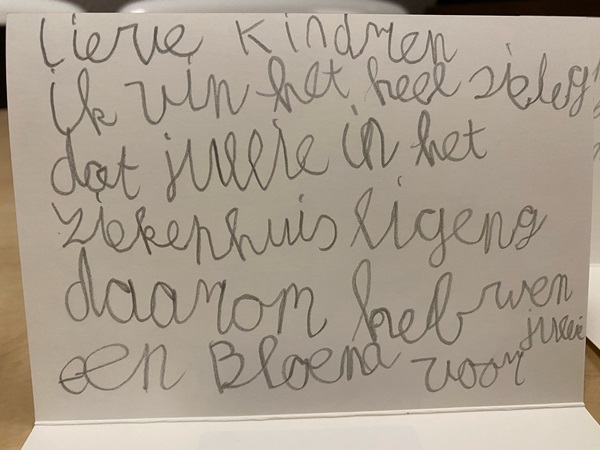 Lieve Kindren
ik vin het heel zieleg
dat jullie in het
ziekenhuis ligeng
daarom heb wen
een Bloem voor jullie